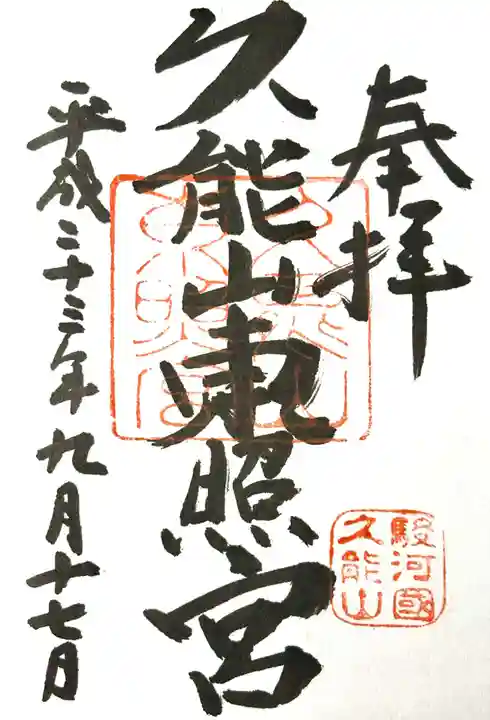 奉拝
駿河國
久能山
久能山東照宮
平成二十三年九月十七日